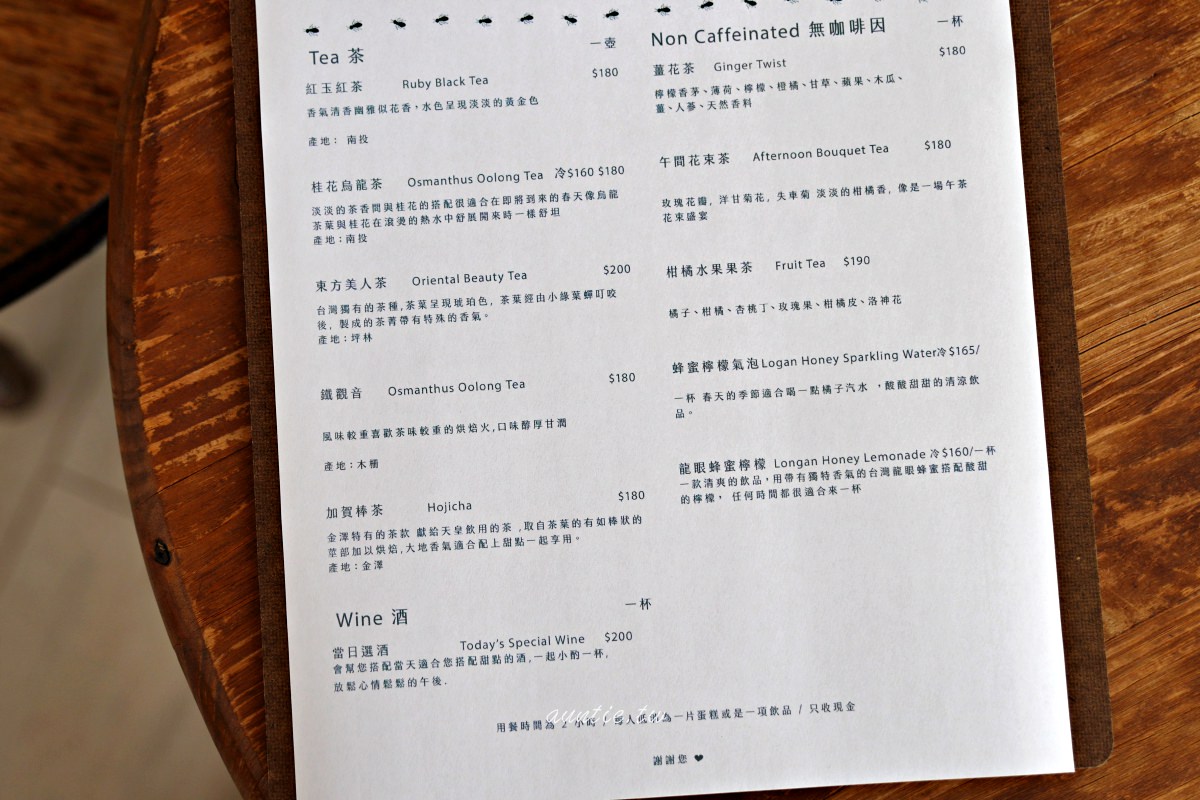 Tea 茶 一壺
紅玉紅茶 Ruby Black Tea $180
香氣清香幽雅似花香，水色呈現淡淡的黃金色
產地： 南投
桂花烏龍茶 Osmanthus Oolong Tea 冷$160 $180
淡淡的茶香間與桂花的搭配很適合在即將到來的春天像烏龍
茶葉與桂花在滾燙的熱水中舒展開來時一樣舒坦
產地：南投
東方美人茶 Oriental Beauty Tea $200
台灣獨有的茶種,茶葉呈現琥珀色, 茶葉經由小綠葉蟬叮咬
後, 製成的茶菁帶有特殊的香氣。
產地：坪林
鐵觀音 Osmanthus Oolong Tea $180
風味較重喜歡茶味較重的烘焙火,口味醇厚甘潤
產地：木柵
加賀棒茶 Hojicha $180
金澤特有的茶款 獻給天皇飲用的茶 ,取自茶葉的有如棒狀的
莖部加以烘焙,大地香氣適合配上甜點一起享用。
產地：金澤
Wine 酒 一杯
當日選酒 Today's Special Wine $200
會幫您搭配當天適合您搭配甜點的酒,一起小酌一杯,
放鬆心情鬆鬆的午後.
Non Caffeinated 無咖啡因 一杯
薑花茶 Ginger Twist $180
檸檬香茅、薄荷、檸檬、橙橘、甘草、蘋果、木瓜、
薑、人蔘、天然香料
午間花束茶 Afternoon Bouquet Tea $180
玫瑰花瓣, 洋甘菊花, 失車菊 淡淡的柑橘香, 像是一場午茶
花束盛宴
柑橘水果果茶 Fruit Tea $190
橘子、柑橘、杏桃丁、玫瑰果、柑橘皮、洛神花
蜂蜜檸檬氣泡Logan Honey Sparkling Water冷$165/
一杯 春天的季節適合喝一點橘子汽水 ，酸酸甜甜的清涼飲
品。
龍眼蜂蜜檸檬 Longan Honey Lemonade 冷$160/一杯
一款清爽的飲品，用帶有獨特香氣的台灣龍眼蜂蜜搭配酸甜
的檸檬， 任何時間都很適合來一杯
用餐時間為 2 小時 / 每人低消為一片蛋糕或是一項飲品 / 只收現金
auntie.tw
謝謝您 ❤